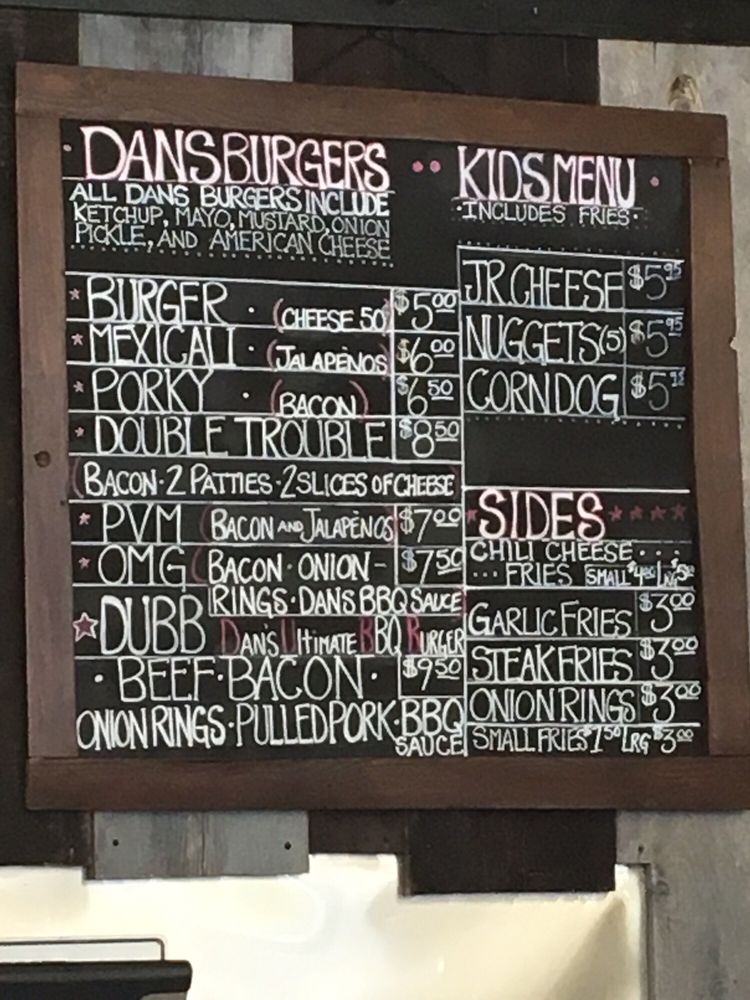 DANS BURGERS
ALL DANS BURGERS INCLUDE
KETCHUP, MAYO, MUSTARD, ONION
PICKLE, AND AMERICAN CHEESE
BURGER · (CHEESE 50) $5.00
MEXICALI · (JALAPENOS) $6.00
PORKY · (BACON) $6.50
DOUBLE TROUBLE $8.50
(BACON · 2 PATTIES · 2 SLICES OF CHEESE
PVM (BACON AND JALAPEÑOS $7.00
OMG (BACON · ONION- $7.50
RINGS · DANS BBQ SAUCE
DUBB DAN'S UltIMATE BBQ BURGER
· BEEF · BACON · $9.50
ONION RINGS · PULLED PORK · BBQ
SAUCE
KIDS MENU
· INCLUDES FRIES ·
JR. CHEESE $5.95
NUGGETS (5) $5.95
CORN DOG $5.95
SIDES
CHILI CHEESE · · ·
· · · FRIES SMALL $4.00
GARLIC FRIES $3.00
STEAK FRIES $3.00
ONION RINGS $3.00
SMALL FRIES $1.50 LRG $3.00